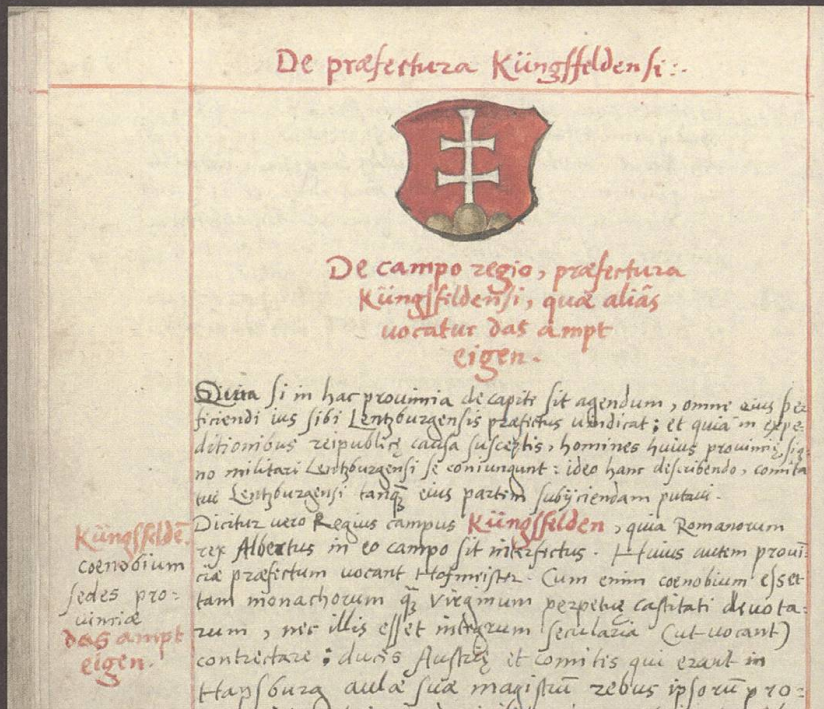 De præfectura Küngsffeldensi:.
De campo regio, præfectura
Küngsfildensi, quæ aliâs
vocatur das ampt
eigen.
Quia si in hac prouinnia de capite sit agendum, omne eius per
ficiendi ius sibi Lentzburgensis præfectus uendicat; et quia in expe-
ditionibus reipublicę causa susceptis, homines huius prouincię, sig-
no militari Lentzburgensi se coniungunt: ideo hanc describendo, comita
tui Lentzburgensi tanq̃ eius partem subijciendam putaui.
Dicitur uero Regius campus Küngsfelden, quia Romanorum
rex Albertus in eo campo sit interfectus. Huius autem prouī
ciæ præfectum uocant Hofmeister. Cum enim coenobium esset
tam monachorum q̃ Virginum perpetuę castitati deuota:
rum, nec illis esset integrum secularia (ut uocant)
contrectare; ducis Austrię et comitis qui erant in
Hapsburg aulæ suæ magistrū rebus ipsorū pro:
Küngsfeldē.
coenobium
sedes pro:
uinciæ
das ampt
eigen.